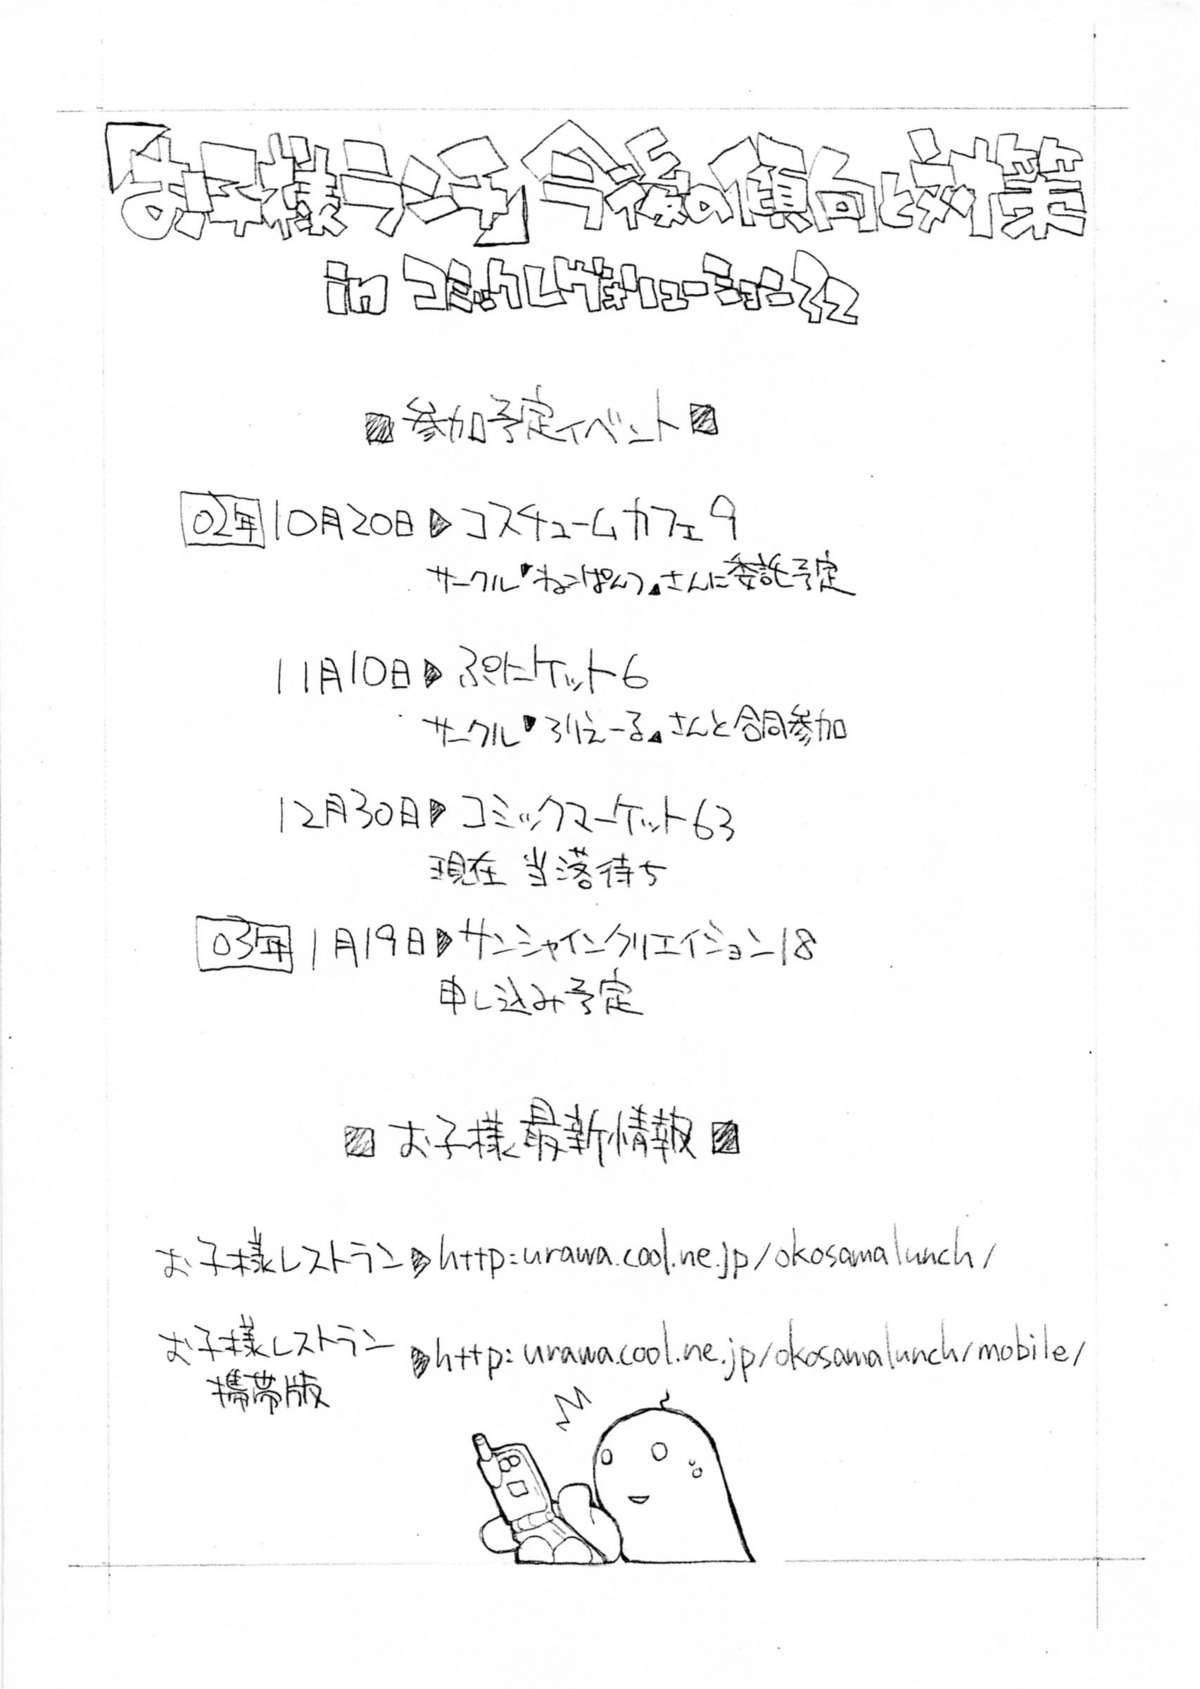 『お子様ランチ』今後の傾向と対策
in コミックレヴォリューション32
参加予定イベント
02年 10月20日 コスチュームカフェ9
サークル『ねこぱんつ』さんに委託予定
11月10日 ぷにケット6
サークル『ろりえーる』さんと合同参加
12月30日 コミックマーケット63
現在 当落待ち
03年 1月19日 サンシャインクリエイション18
申し込み予定
お子様最新情報
お子様レストラン http:urawa.cool.ne.jp/okosamalunch/
お子様レストラン http:urawa.cool.ne.jp/okosamalunch/mobile/
携帯版